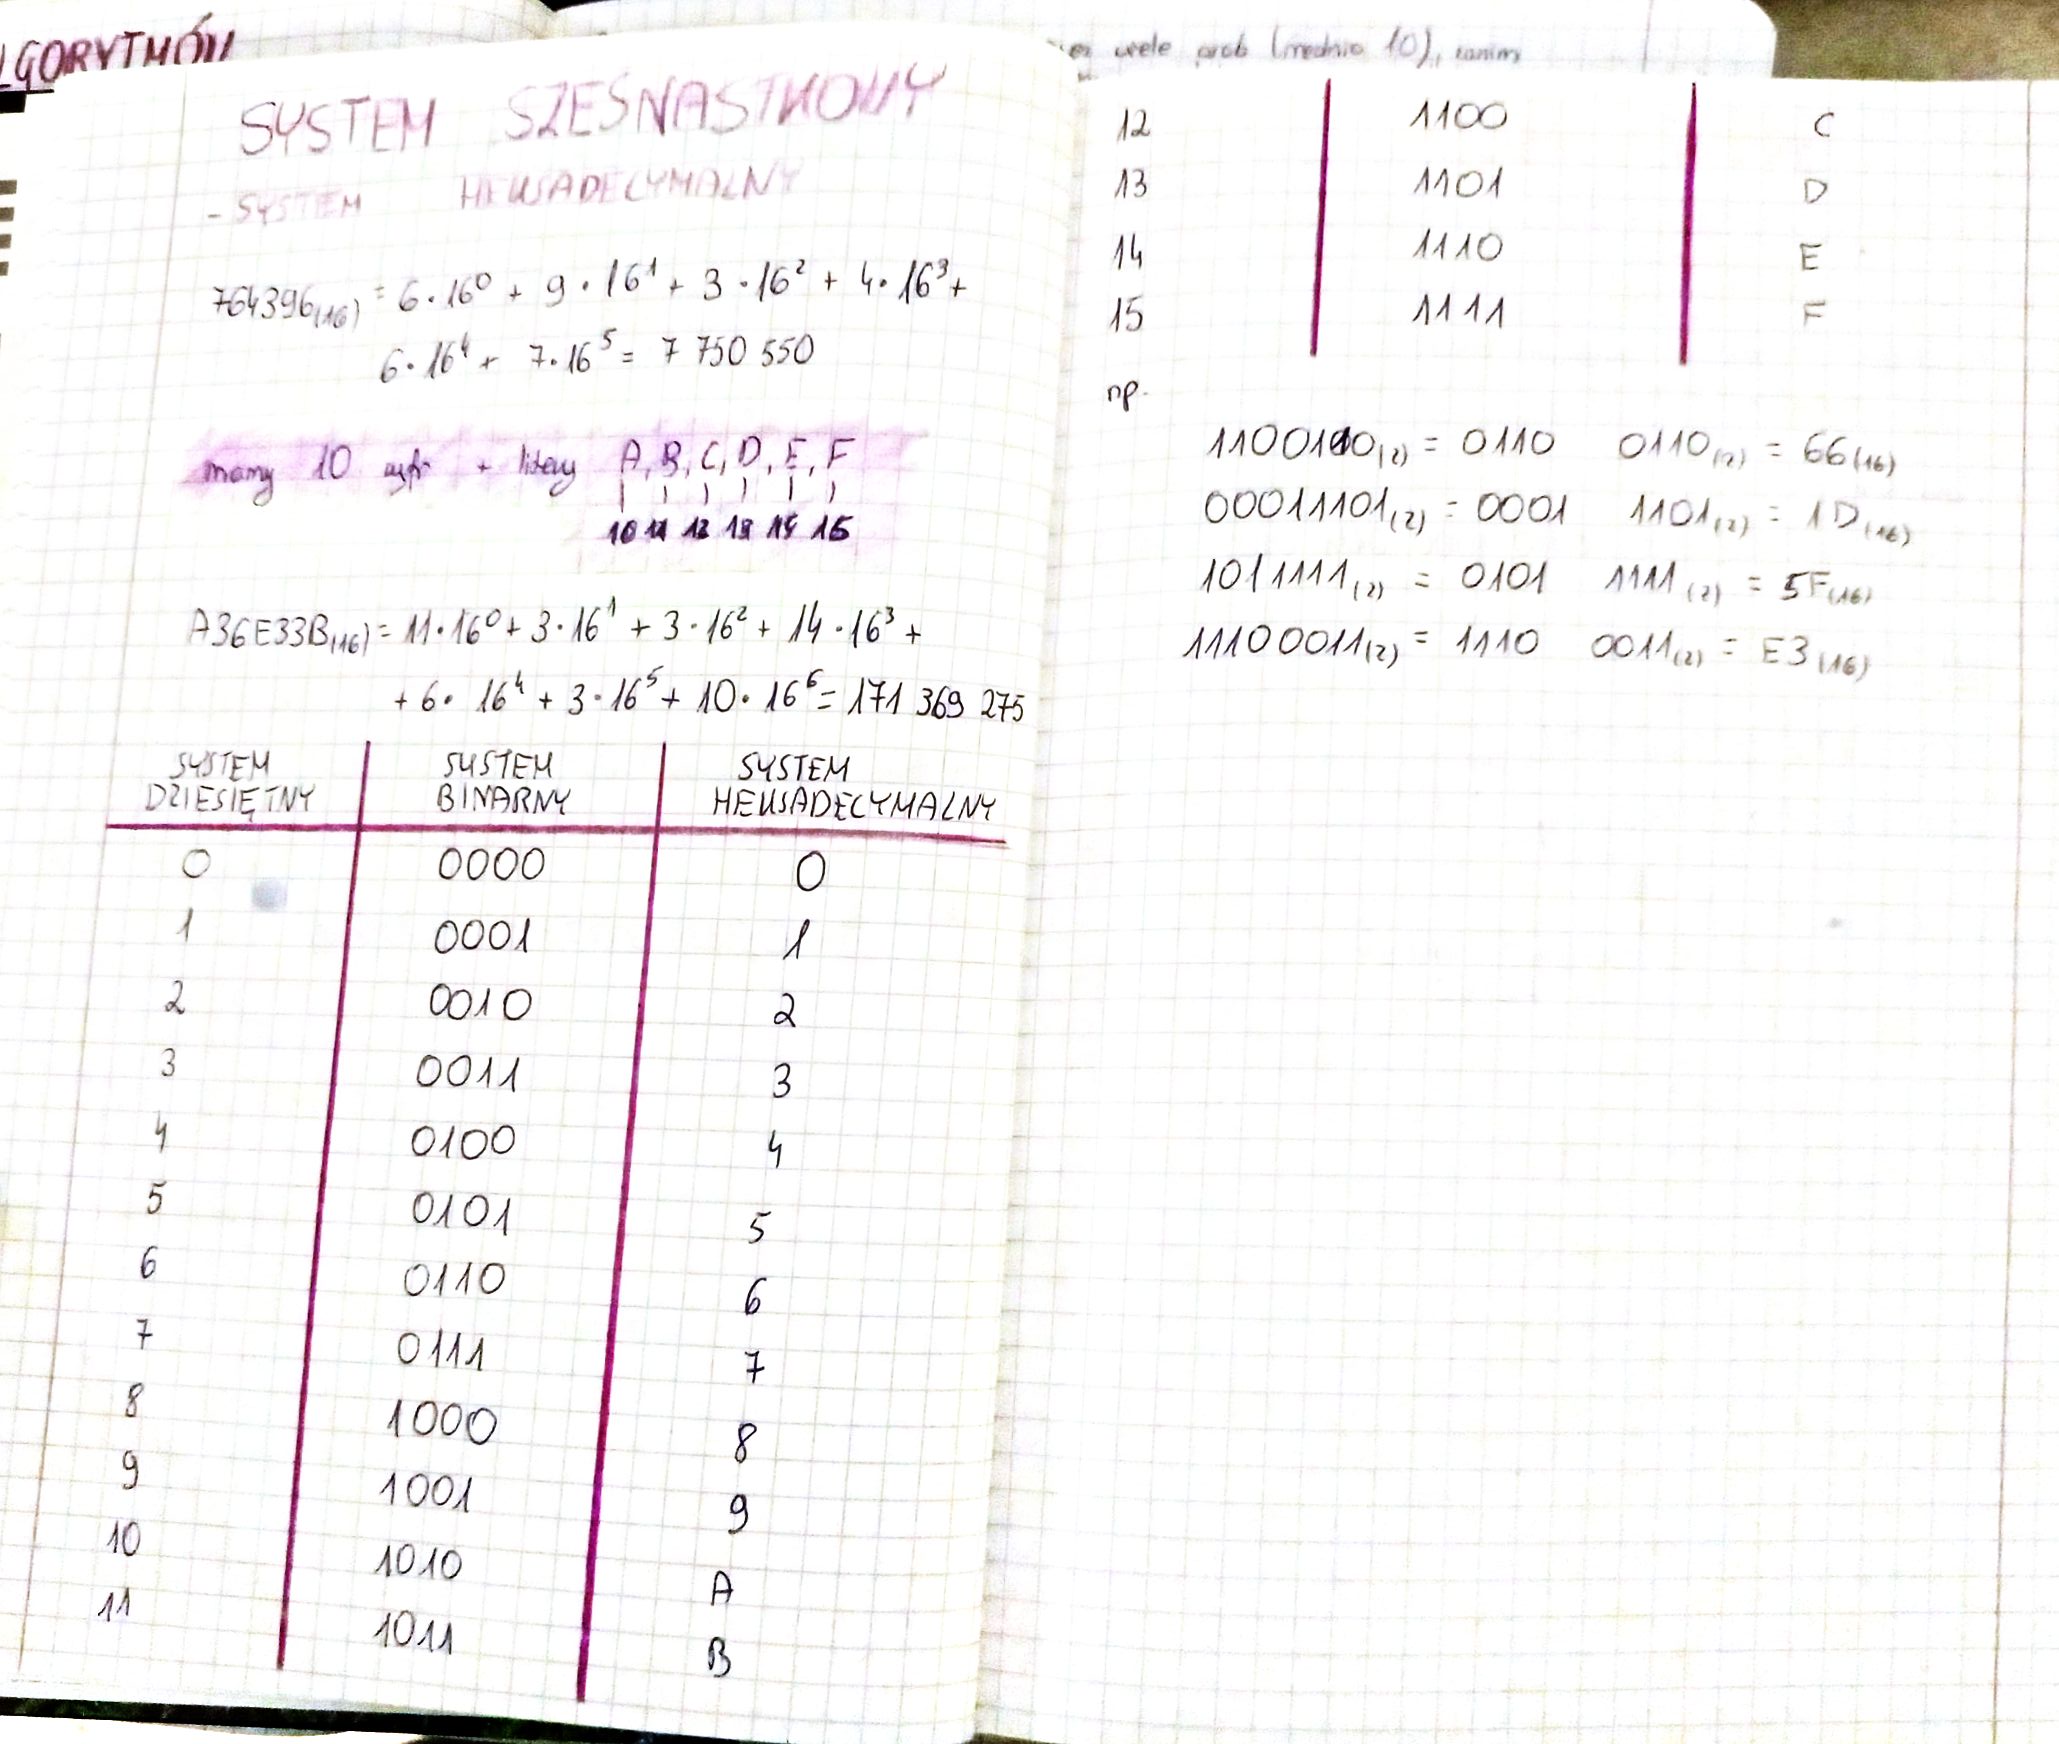 LGORYTMÓW
SYSTEM SZESNASTKOWY
- SYSTEM HEKSADECYMALNY
764396(16) = 6·16⁰ + 9·16¹ + 3·16² + 4·16³ +
6·16⁴ + 7·16⁵ = 7 750 550
mamy 10 cyfr + litery A, B, C, D, E, F
10 11 12 13 14 15
A36E33B(16) = 11·16⁰ + 3·16¹ + 3·16² + 14·16³ +
+ 6·16⁴ + 3·16⁵ + 10·16⁶ = 171 369 275
SYSTEM DZIESIĘTNY SYSTEM BINARNY SYSTEM HEKSADECYMALNY
0 0000 0
1 0001 1
2 0010 2
3 0011 3
4 0100 4
5 0101 5
6 0110 6
7 0111 7
8 1000 8
9 1001 9
10 1010 A
11 1011 B
wiele prób (średnio 10), zanim
12 1100 C
13 1101 D
14 1110 E
15 1111 F
np.
1100110(2) = 0110 0110(2) = 66(16)
00011101(2) = 0001 1101(2) = 1D(16)
1011111(2) = 0101 1111(2) = 5F(16)
11100011(2) = 1110 0011(2) = E3(16)